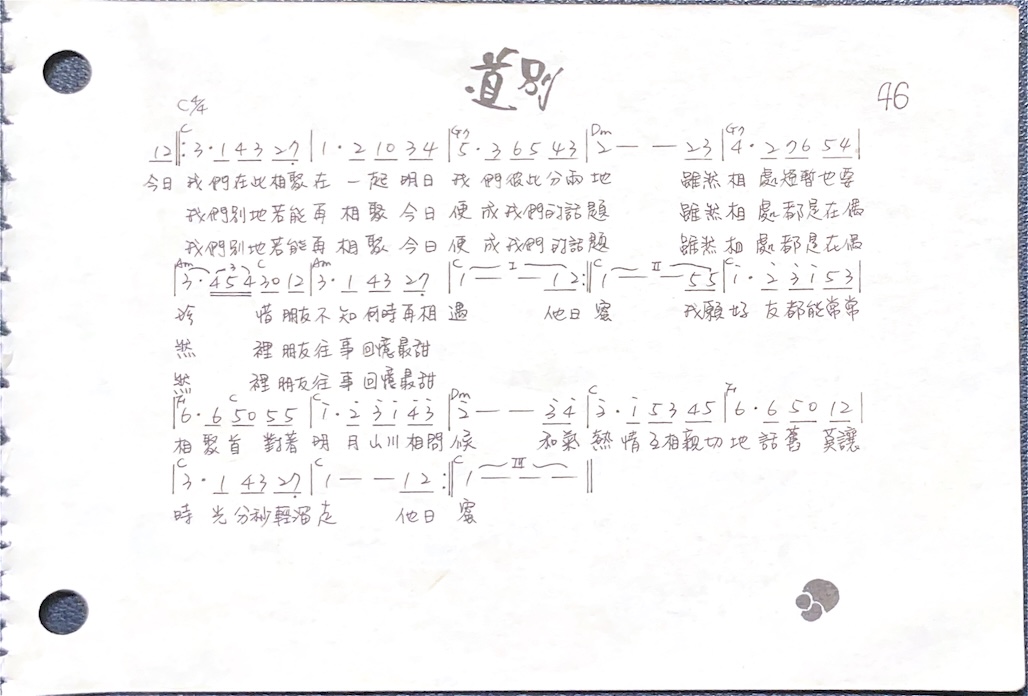 道別
46
C 4/4
C G7 Dm G7
12 ‖: 3 · 1 4 3 2 7 | 1 · 2 1 0 3 4 | 5 · 3 6 5 4 3 | 2 — — 2 3 | 4 · 2 7 6 5 4 |
今日 我們在此相聚在 一起 明日 我們彼此分兩地 雖然相處短暫也要
我們別地若能再相聚 今日便成我們的話題 雖然相處都是在偶
我們別地若能再相聚 今日便成我們的話題 雖然相處都是在偶
Am 3 C Am C I C II C
| 3 · 4 5 4 3 0 1 2 | 3 · 1 4 3 2 7 | 1 — — 1 2 :‖ 1 — — 5 5 | 1 · 2 3 1 5 3 |
珍 惜朋友不知何時再相遇 他日蜜 我願好友都能常常
然 裡朋友往事回憶最甜
然 裡朋友往事回憶最甜
F C C Dm C F
| 6 · 6 5 0 5 5 | 1 · 2 3 1 4 3 | 2 — — 3 4 | 2 · 1 5 3 4 5 | 6 · 6 5 0 1 2 |
相聚首 對著明月山川相問候 和氣熱情互相親切地話舊 莫讓
C C C III
| 3 · 1 4 3 2 7 | 1 — — 1 2 :‖ 1 — — — ‖
時光分秒輕溜走 他日 蜜